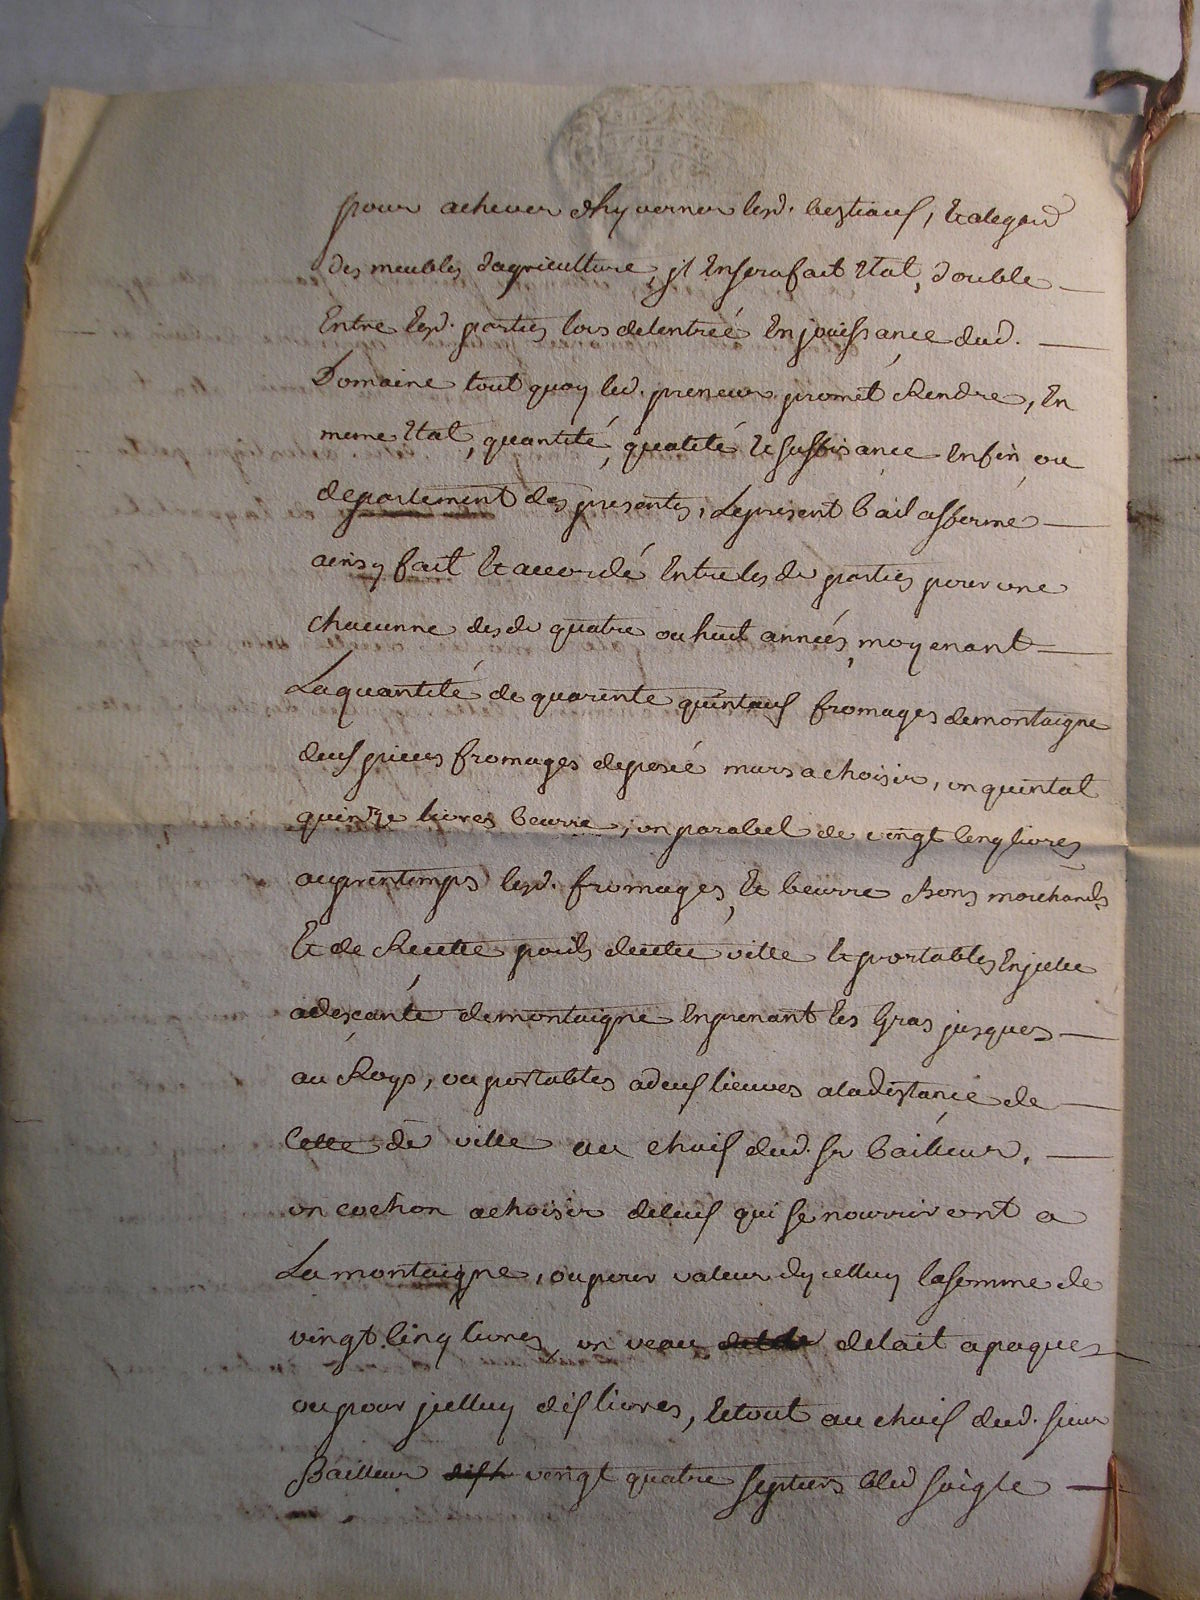 pour achever dhyverner lesd. bestiaux, Et alegard
des meubles dagriculture, jl En sera fait Etat, double
Entre lesd. parties lors delentreé En jouissance dud.
Domaine tout quoy led. preneur promet Rendre, En
meme Etat, quantité, qualité Et suffisance Enfin ou
departement des presentes, Le present bail afferme
ainsy fait Et accordé Entre les de parties pour une
chacunne desde quatre ou huit années, moyenant
La quantité de quarente quintaux fromages demontaigne
deux pieces fromages de murs a choisir, un quintal
quinze livres beurre, un de vingt cinq livres
au printemps lesd. fromages, Et beurre Bons marchands
Et de Recette poids de ville Et portables
demontaigne En prenant les Gras jusques
au Roys, ou portables a deux lieuves a la distance de
Cette de ville au choix dud. sr bailleur.
un cochon a choisir de ceux qui se nourriront a
La montaigne, ou pour valeur dycelluy la somme de
vingt cinq livres, un veau delait a paques
ou pour jcelluy dix livres, Le tout au choix dud. sieur
Bailleur vingt quatre septiers bled soigle